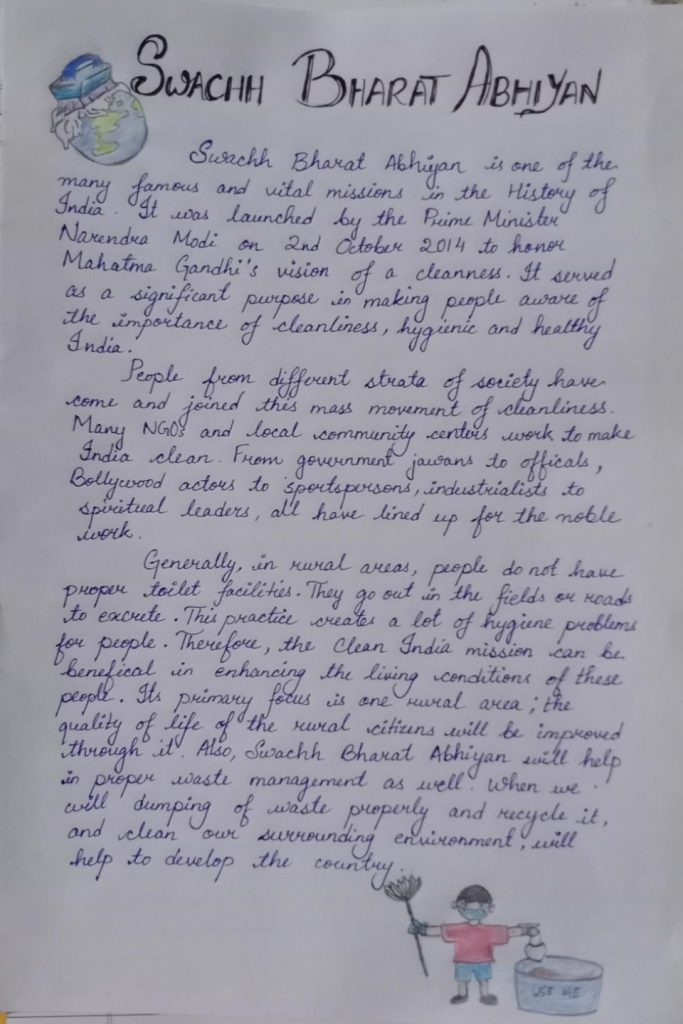 SWACHH BHARAT ABHIYAN
Swachh Bharat Abhiyan is one of the
many famous and vital missions in the History of
India. It was launched by the Prime Minister
Narendra Modi on 2nd October 2014 to honor
Mahatma Gandhi's vision of a cleanness. It served
as a significant purpose in making people aware of
the importance of cleanliness, hygienic and healthy
India.
People from different strata of society have
come and joined this mass movement of cleanliness.
Many NGOs and local community centers work to make
India clean. From government jawans to officals,
Bollywood actors to sportspersons, industrialists to
spiritual leaders, all have lined up for the noble
work.
Generally, in rural areas, people do not have
proper toilet facilities. They go out in the fields or roads
to excrete. This practice creates a lot of hygiene problems
for people. Therefore, the Clean India mission can be
benefical in enhancing the living conditions of these
people. Its primary focus is one rural area; the
quality of life of the rural citizens will be improved
through it. Also, Swachh Bharat Abhiyan will help
in proper waste management as well. When we
will dumping of waste properly and recycle it,
and clean our surrounding environment, will
help to develop the country.
USE ME